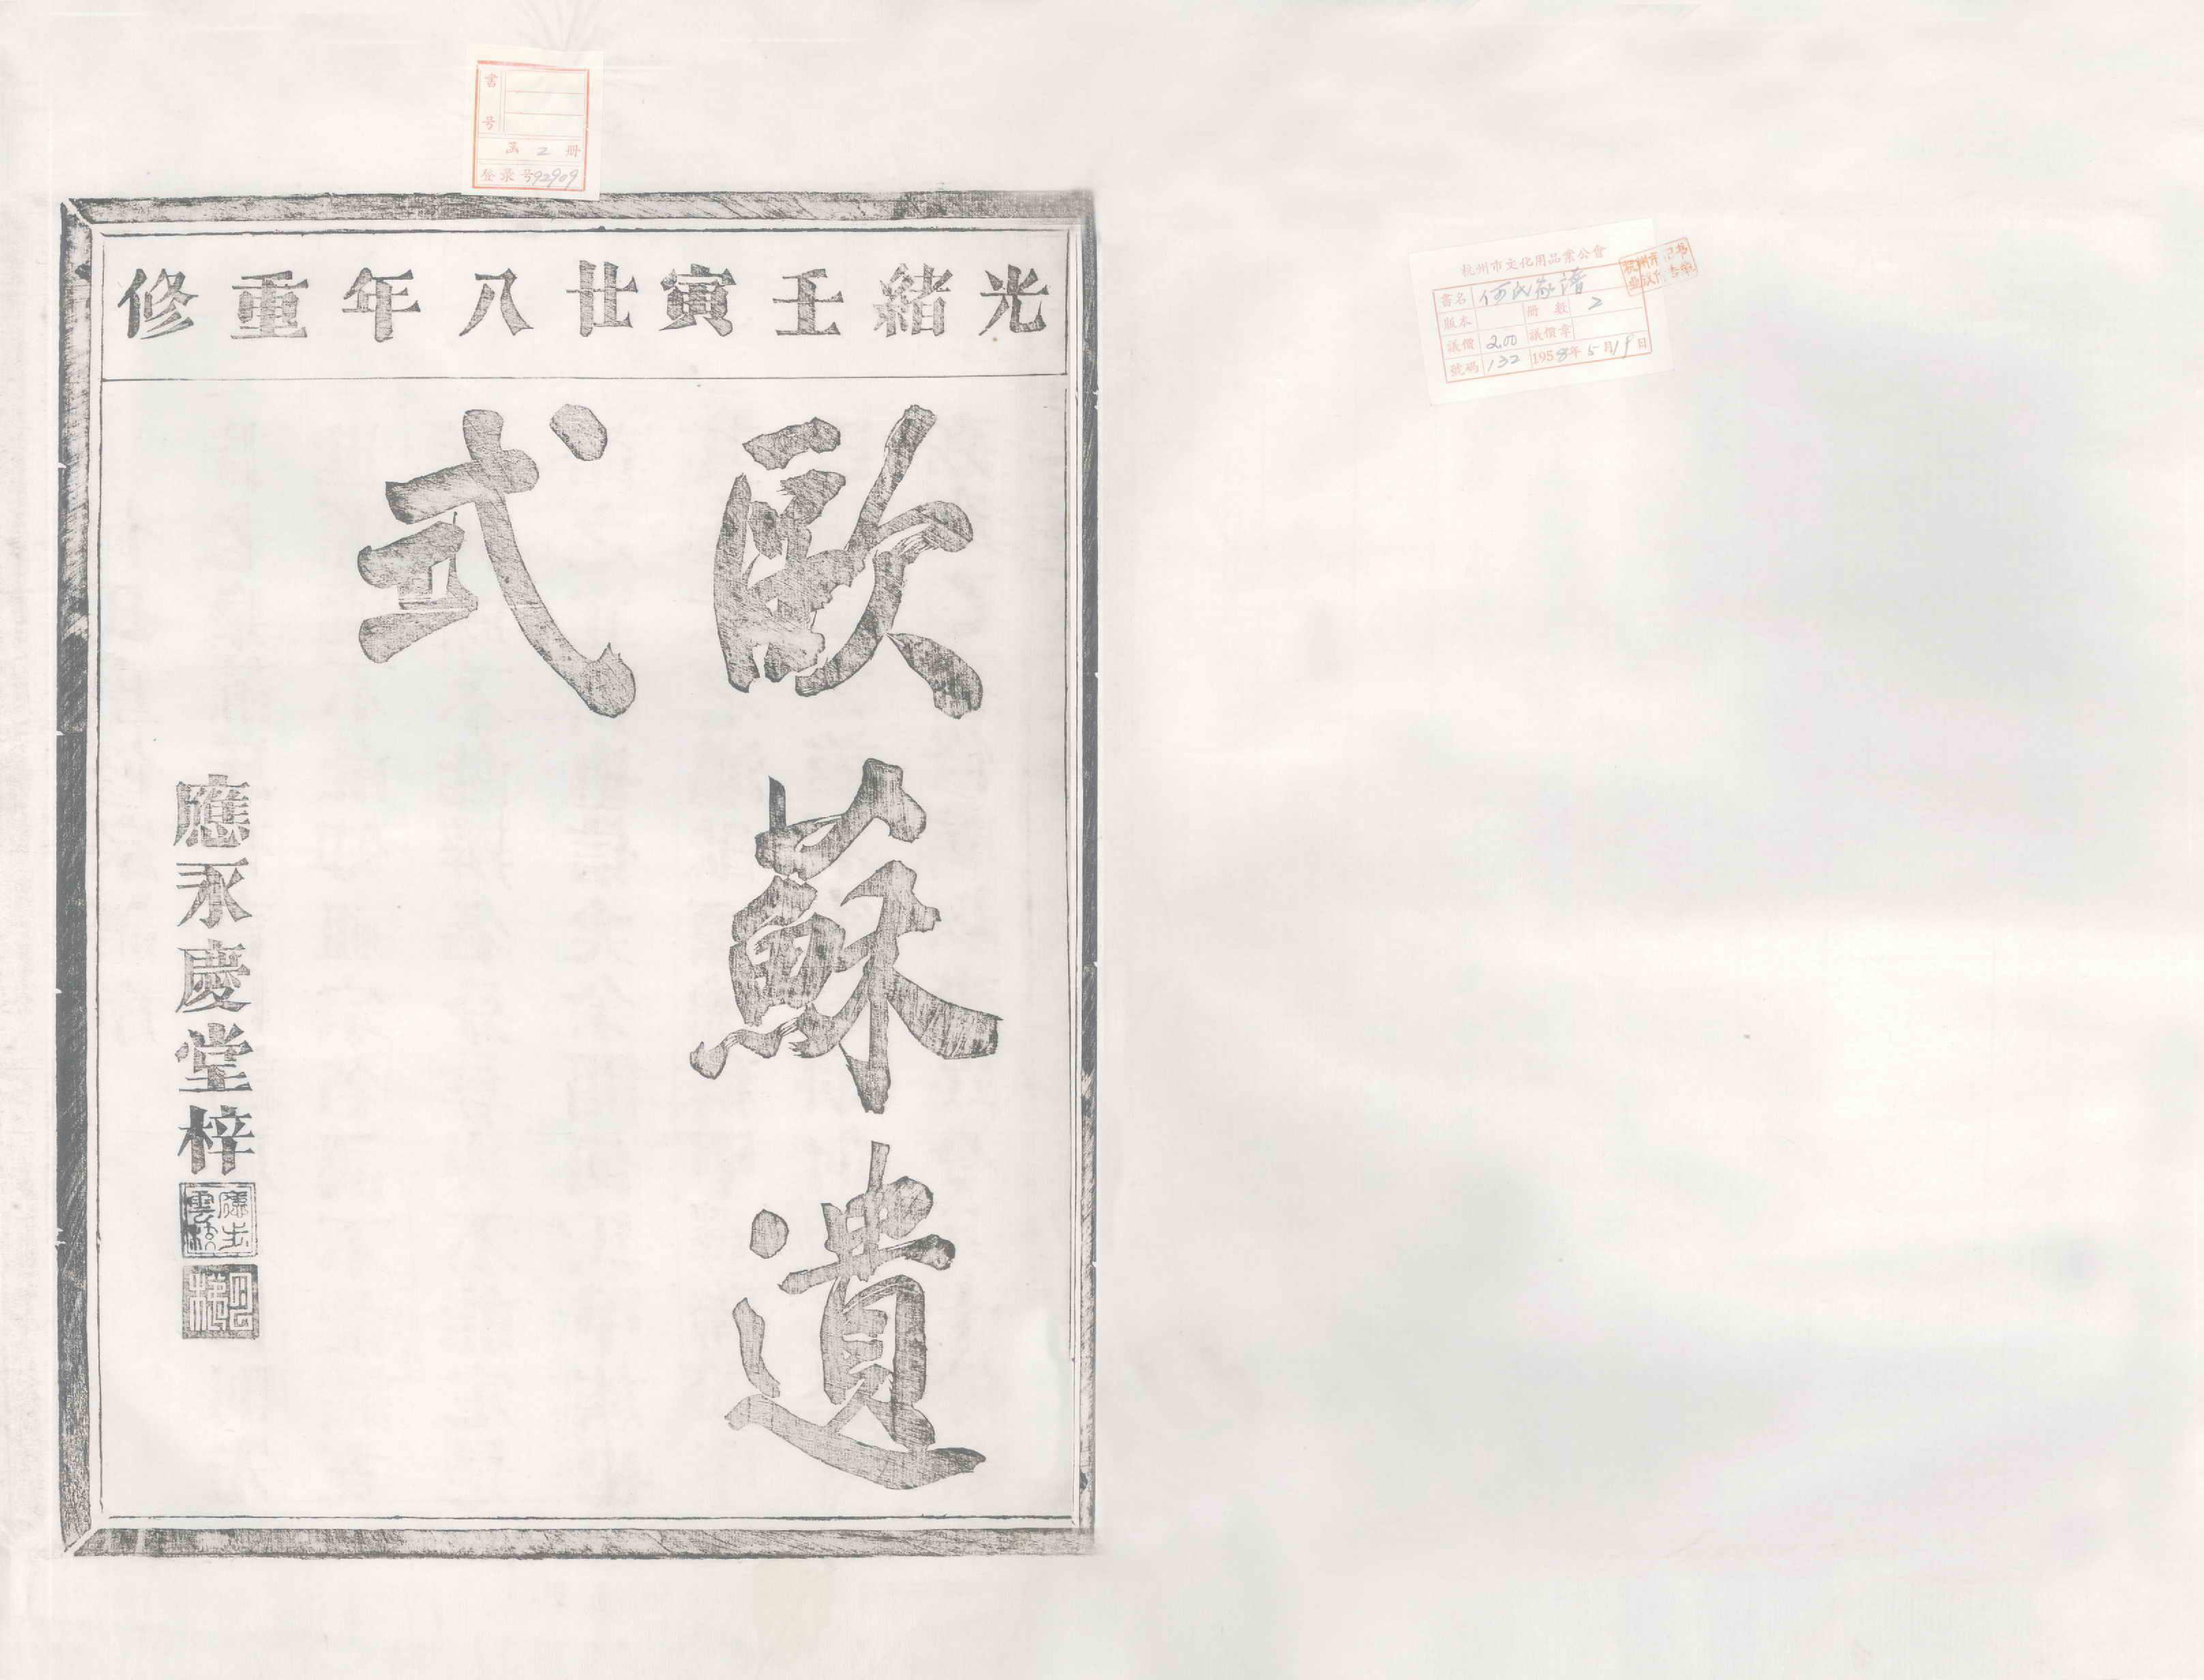 光緒壬寅廿八年重修
歐蘇遺
式
應永慶堂梓
書号
函2册
登录号92909
杭州市文化用品業公會
書名 何氏家譜
版本 册數 2
議價 2.00 議價章
號碼 132 1958年5月19日